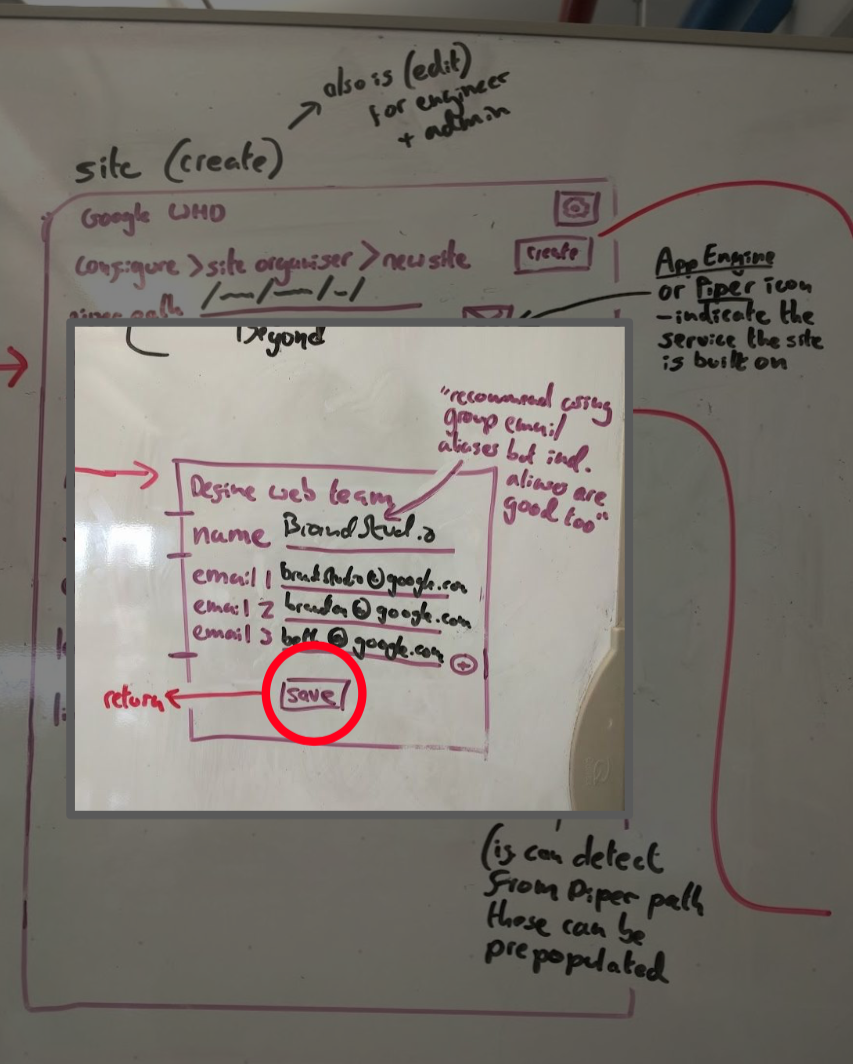 also is (edit)
for engineer
+ admin
site (create)
Google WHD
configure > site organiser > new site
create
App Engine
or Piper icon
- indicate the
service the site
is built on
Beyond
"recommend using
group email
aliases but ind.
aliases are
good too"
Define web team
name BrandStudio
email 1 brandstudio@google.com
email 2 brendan@google.com
email 3 @google.com
+
save
return
(if can detect
from Piper path
these can be
prepopulated